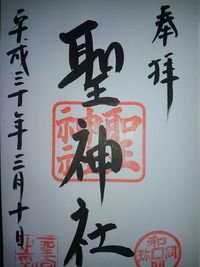 奉拝
聖神社
平成三十年三月十日
聖神社
和同